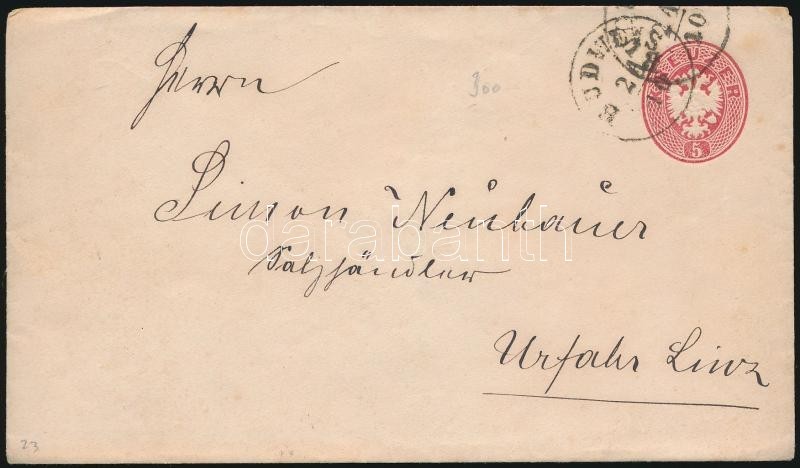 Herrn
300
KREUZER
5
Simon Neubauer
darabanth
Salzhändler
Urfahr Linz
23